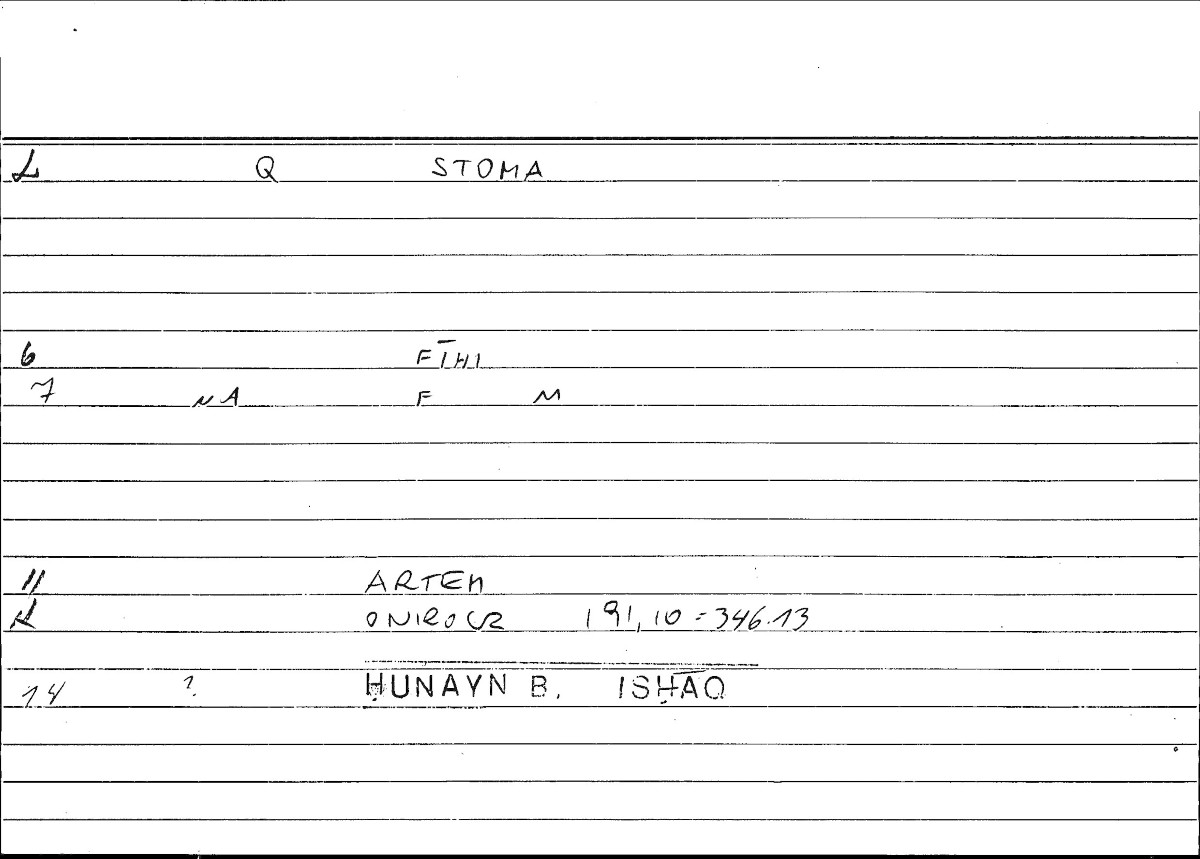 Q STOMA
6 FĪHI
7 NA F M
11 ARTEM
ONIROCR 191,10=346.13
14 ? ḤUNAYN B. ISḤĀQ